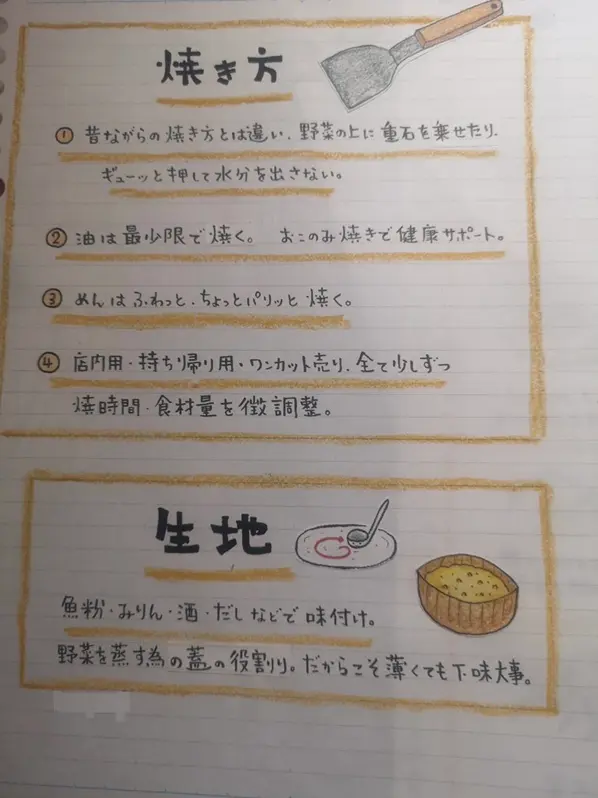 焼き方
① 昔ながらの焼き方とは違い、野菜の上に重石を乗せたり、
ギューッと押して水分を出さない。
② 油は最少限で焼く。 おこのみ焼きで健康サポート。
③ めんはふわっと、ちょっとパリッと焼く。
④ 店内用・持ち帰り用・ワンカット売り、全て少しずつ
焼時間・食材量を微調整。
生地
魚粉・みりん・酒・だしなどで味付け。
野菜を蒸す為の蓋の役割り。だからこそ薄くても下味大事。